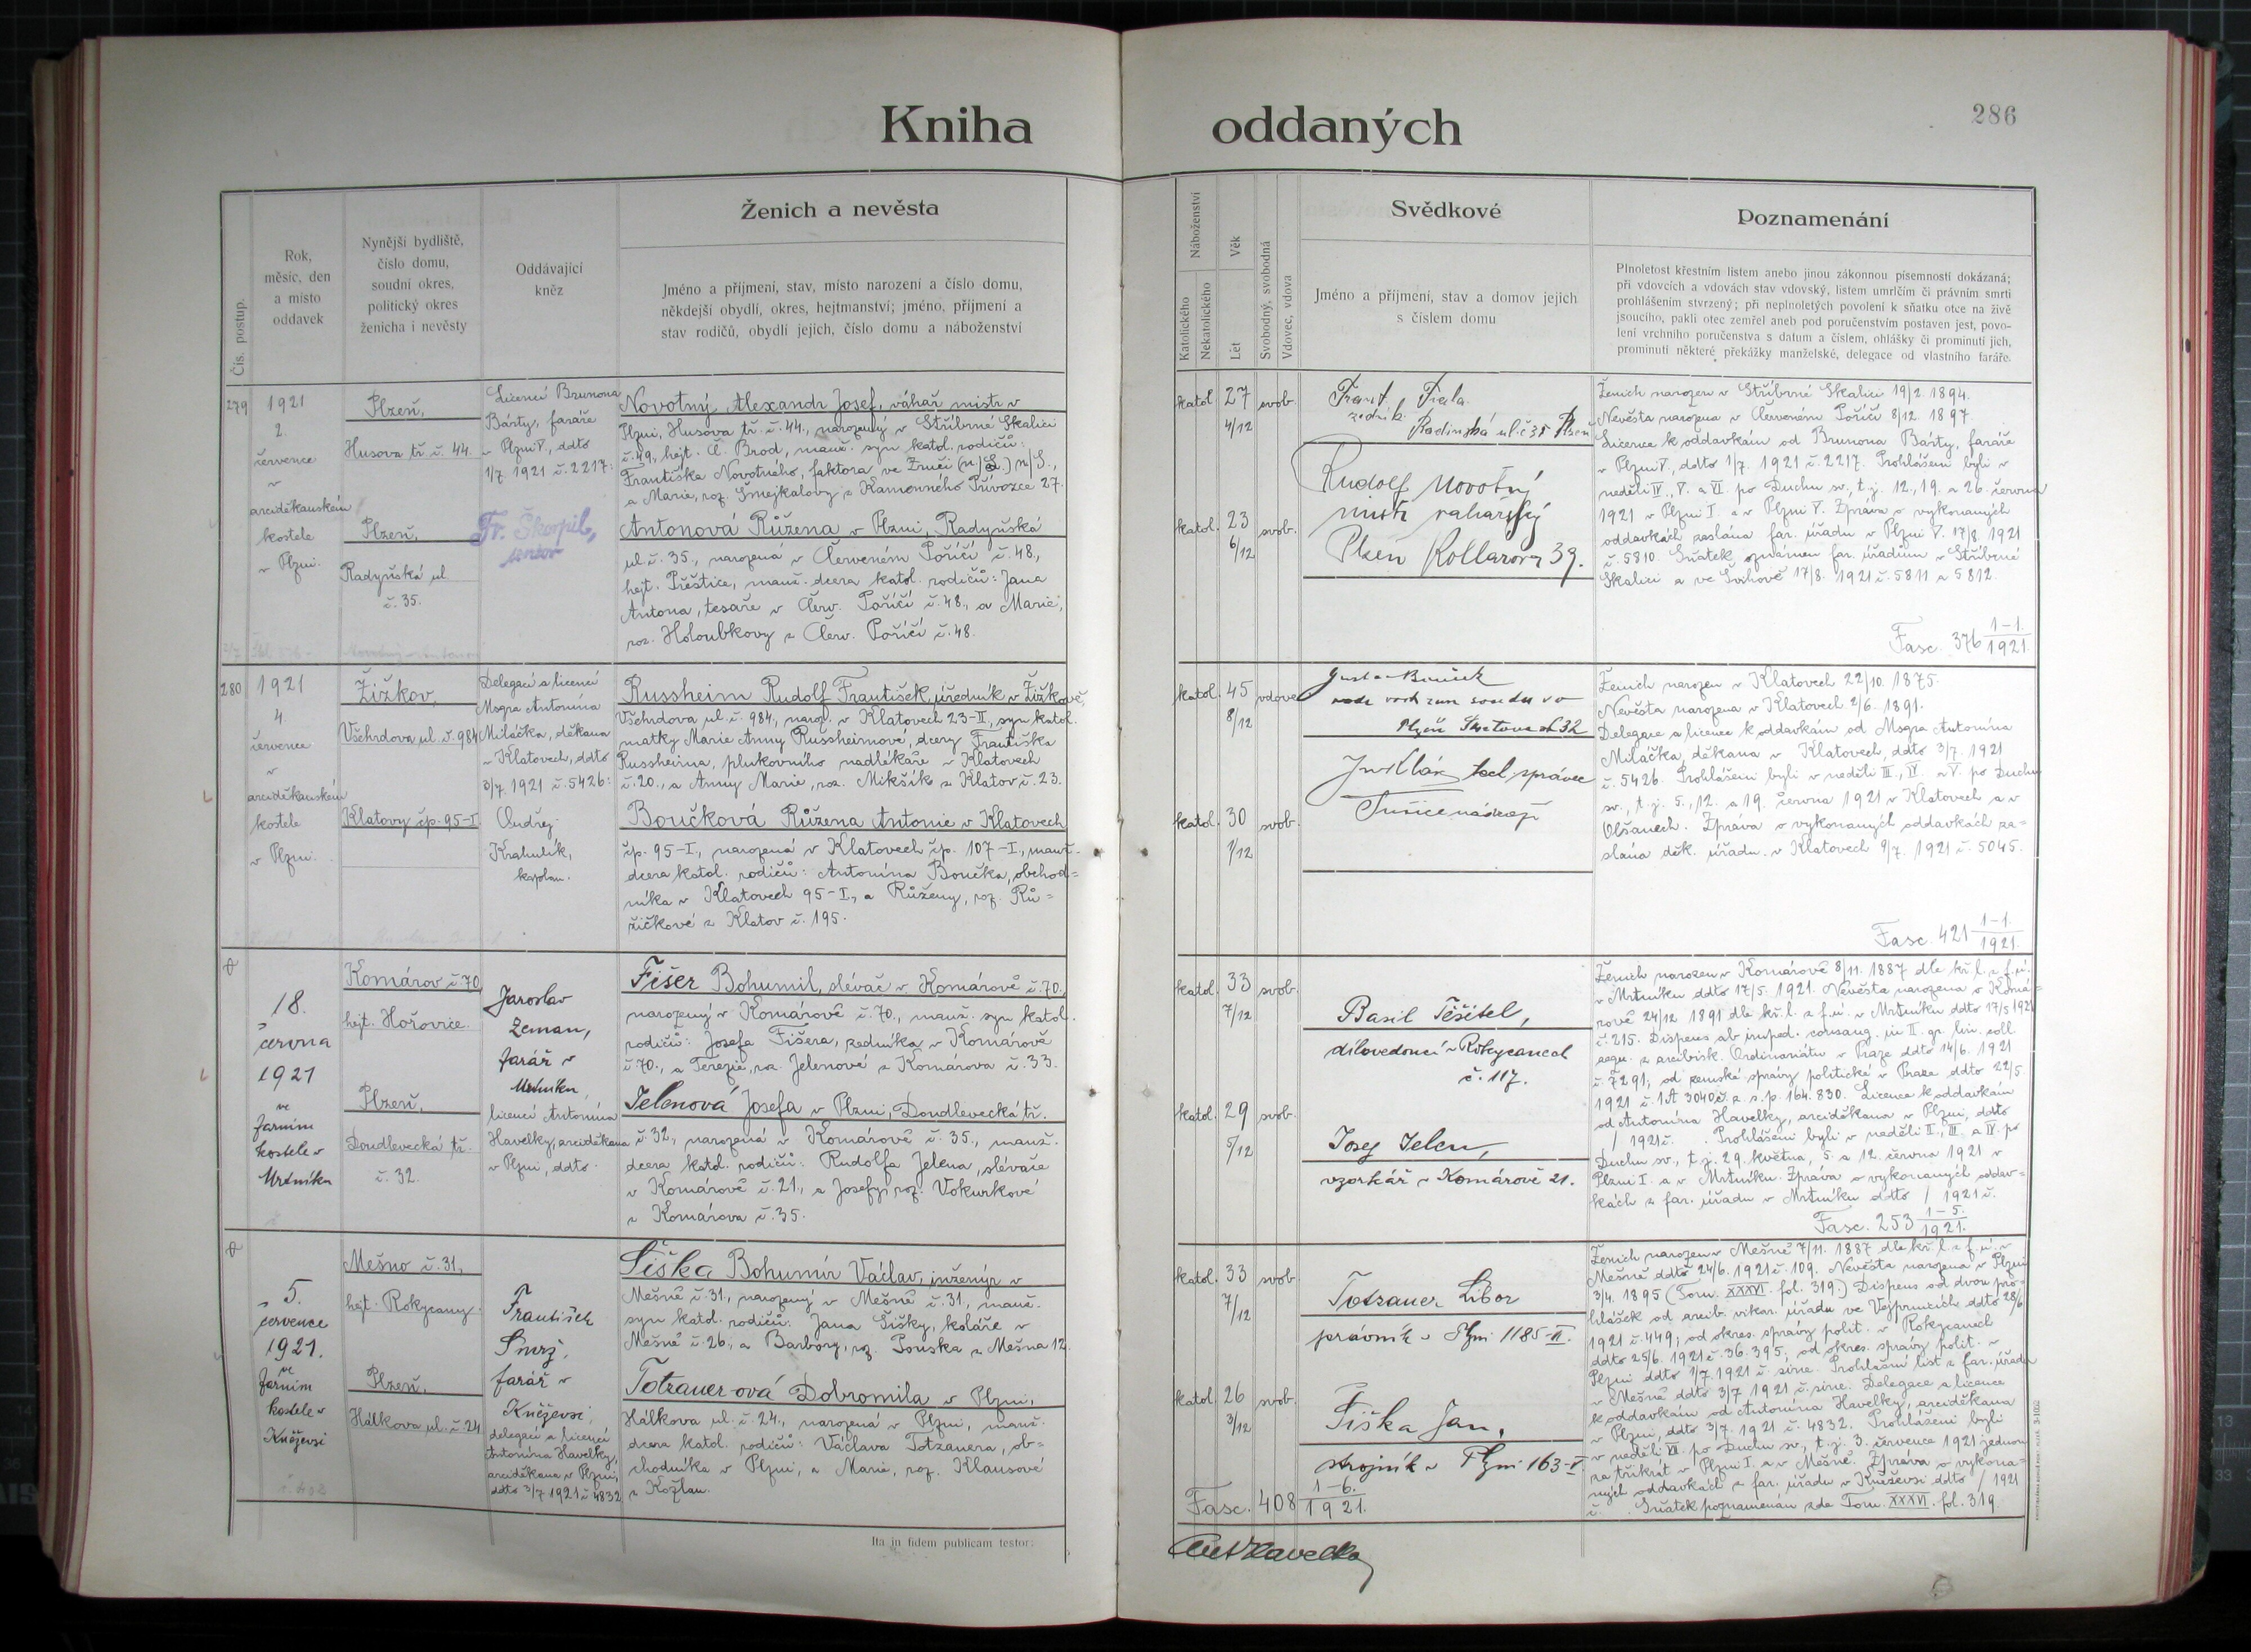 Kniha oddaných
286
Čís. postup.
Rok,
měsíc, den
a místo
oddavek
Nynější bydliště,
číslo domu,
soudní okres,
politický okres
ženicha i nevěsty
Oddávající
kněz
Ženich a nevěsta
Jméno a příjmení, stav, místo narození a číslo domu,
někdejší obydlí, okres, hejtmanství; jméno, příjmení a
stav rodičů, obydlí jejich, číslo domu a náboženství
Náboženství
Katolického
Nekatolického
Věk
Let
Svobodný, svobodná
Vdovec, vdova
Svědkové
Jméno a příjmení, stav a domov jejich
s číslem domu
Poznamenání
Plnoletost křestním listem anebo jinou zákonnou písemností dokázaná;
při vdovcích a vdovách stav vdovský, listem umrlčím či právním smrti
prohlášením stvrzený; při neplnoletých povolení k sňatku otce na živě
jsoucího, pakli otec zemřel aneb pod poručenstvím postaven jest, povo-
lení vrchního poručenstva s datum a číslem, ohlášky či prominutí jich,
prominutí některé překážky manželské, delegace od vlastního faráře.
279
1921
2.
července
v
arciděkanském
kostele
v Plzni.
Plzeň,
Husova tř. č. 44.
Plzeň,
Radyňská ul.
č. 35.
Licencí Brunona
Bárty, faráře
v Plzni V., ddto
1/7. 1921 č. 2217:
Fr. Škorpil,
Novotný Alexandr Josef, váhař mistr v
Plzni, Husova tř. č. 44., narozený v Stříbrné Skalici
č. 49, hejt. Č. Brod, manž. syn katol. rodičů:
Františka Novotného, faktora ve Zruči (n/S.) n/S.,
a Marie, roz. Smejkalovy z Kamenného Přívozce 27.
Antonová Růžena v Plzni, Radyňská
ul. č. 35., narozená v Červeném Poříčí č. 48.,
hejt. Přeštice, manž. dcera katol. rodičů: Jana
Antona, tesaře v Červ. Poříčí č. 48., a Marie,
roz. Holoubkovy z Červ. Poříčí č. 48.
katol. 27 svob.
4/12
katol. 23 svob.
6/12
Frant.
zedník
Radinská ul. č 35 Plzeň
Rudolf Novotný
mistr vahařský
Plzeň Kollarova 39.
Ženich narozen v Stříbrné Skalici 19/2. 1894.
Nevěsta narozena v Červeném Poříčí 8/12. 1897.
Licence k oddavkám od Brunona Bárty, faráře
v Plzni V., ddto 1/7. 1921 č. 2217. Prohlášeni byli v
neděli IV., V. a VI. po Duchu sv., t. j. 12., 19. a 26. června
1921 v Plzni I. a v Plzni V. Zpráva o vykonaných
oddavkách zaslána far. úřadu v Plzni V. 17/8. 1921
č. 5810. Sňatek oznámen far. úřadům v Stříbrné
Skalici a ve Švihově 17/8. 1921 č. 5811 a 5812.
Fasc. 376 1-1./1921.
280
1921
4
července
v
arciděkanském
kostele
v Plzni.
Žižkov,
Všehrdova ul. č. 984
Klatovy čp. 95-I.
Delegací a licencí
Msgra Antonína
Miláčka, děkana
v Klatovech, ddto
3/7. 1921 č. 5426:
Ondřej
Krahulík,
kaplan.
Russheim Rudolf František, úředník v Žižkově,
Všehrdova ul. č. 984, naroz. v Klatovech 23-II., syn katol.
matky Marie Anny Russheimové, dcery Františka
Russheima, plukovního nadlékaře v Klatovech
č. 20., a Anny Marie, roz. Mikšík z Klatov č. 23.
Boučková Růžena Antonie v Klatovech
čp. 95-I., narozená v Klatovech čp. 107-I., manž.
dcera katol. rodičů: Antonína Boučka, obchod-
níka v Klatovech 95-I., a Růženy, roz. Rů-
žičkové z Klatov č. 195.
katol. 45 vdovec
8/12
katol. 30 svob.
1/12
soudu vo
Plzeň
správce
Sušice nádraží
Ženich narozen v Klatovech 22/10. 1875.
Nevěsta narozena v Klatovech 2/6. 1891.
Delegace a licence k oddavkám od Msgra Antonína
Miláčka, děkana v Klatovech, ddto 3/7. 1921
č. 5426. Prohlášeni byli v neděli III., IV. a V. po Duchu
sv., t. j. 5., 12. a 19. června 1921 v Klatovech a v
Olšanech. Zpráva o vykonaných oddavkách za-
slána děk. úřadu v Klatovech 9/7. 1921 č. 5045.
Fasc. 421 1-1./1921.
18.
června
1921
ve
farním
kostele v
Mrtníku
Komárov č. 70
hejt. Hořovice.
Plzeň,
Doudlevecká tř.
č. 32.
Jaroslav
Zeman,
farář v
Mrtníku,
licencí Antonína
Havelky, arciděkana
v Plzni, ddto.
Fišer Bohumil, slévač v Komárově č. 70.,
narozený v Komárově č. 70., manž. syn katol.
rodičů: Josefa Fišera, zedníka v Komárově
č. 70., a Terezie, roz. Jelenové z Komárova č. 33.
Jelenová Josefa v Plzni, Doudlevecká tř.
č. 32., narozená v Komárově č. 35., manž.
dcera katol. rodičů: Rudolfa Jelena, slévače
v Komárově č. 21., a Josefy, roz. Vokurkové
z Komárova č. 35.
katol. 33 svob.
7/12
katol. 29 svob.
5/12
Basil Těšitel,
dílovedoucí v Rokycanech
č. 117.
Josef Jelen,
vzorkář v Komárově 21.
Ženich narozen v Komárově 8/11. 1887 dle kř. l. z f. ú.
v Mrtníku ddto 17/5. 1921. Nevěsta narozena v Komá-
rově 24/12. 1891 dle kř. l. z f. ú. v Mrtníku ddto 17/5 1921
č. 215. Dispens ab imped. consang. in II. gr. lin. coll.
aequ. z arcibisk. Ordinariátu v Praze ddto 14/6. 1921
č. 7291; od zemské správy politické v Praze ddto 22/5
1921 č. 1A 3040 č. z. s. p. 164.830. Licence k oddavkám
od Antonína Havelky, arciděkana v Plzni, ddto
/ 1921 č. . Prohlášeni byli v neděli II., III. a IV. po
Duchu sv., t. j. 29. května, 5. a 12. června 1921 v
Plzni I. a v Mrtníku. Zpráva o vykonaných oddav-
kách z far. úřadu v Mrtníku ddto / 1921 č.
Fasc. 253 1-5./1921.
5.
července
1921.
ve
farním
kostele v
Kněževsi
Mešno č. 31,
hejt. Rokycany.
Plzeň,
Hálkova ul. č. 24
František
Smrž,
farář v
Kněževsi,
delegací a licencí
Antonína Havelky,
arciděkana v Plzni,
ddto 3/7 1921 č. 4832
Šiška Bohumír Václav, inženýr v
Mešně č. 31., narozený v Mešně č. 31., manž.
syn katol. rodičů: Jana Šišky, koláře v
Mešně č. 26., a Barbory, roz. Pouska z Mešna 12.
Totzauerová Dobromila v Plzni,
Hálkova ul. č. 24., narozená v Plzni, manž.
dcera katol. rodičů: Václava Totzauera, ob-
chodníka v Plzni, a Marie, roz. Klausové
z Kozlan.
katol. 33 svob.
7/12
katol. 26 svob.
3/12
Totzauer Libor
právník v Plzni 1185-II.
Šiška Jan,
strojník v Plzni 163-V
Fasc. 408 1-6./1921.
Ženich narozen v Mešně 7/11. 1887 dle kř. l. z f. ú. v
Mešně ddto 24/6. 1921 č. 109. Nevěsta narozena v Plzni
3/4. 1895 (Tom. XXXVI. fol. 319.) Dispens od dvou pro-
hlášek od arcib. vikar. úřadu ve Vejprnicích ddto 28/6
1921 č. 449; od okres. správy polit. v Rokycanech
ddto 25/6. 1921 č. 36.395; od okres. správy polit. v
Plzni ddto 1/7. 1921 č. sine. Prohlašní list z far. úřadu
v Mešně ddto 3/7 1921 č. sine. Delegace a licence
k oddavkám od Antonína Havelky, arciděkana
v Plzni, ddto 3/7. 1921 č. 4832. Prohlášeni byli
v neděli VII. po Duchu sv., t. j. 3. července 1921 jednou
za třikrát v Plzni I. a v Mešně. Zpráva o vykona-
ných oddavkách z far. úřadu v Kněževsi ddto / 1921
č. . Sňatek poznamenán zde Tom. XXXVI. fol. 319.
Ita in fidem publicam testor:
Ant Havelka